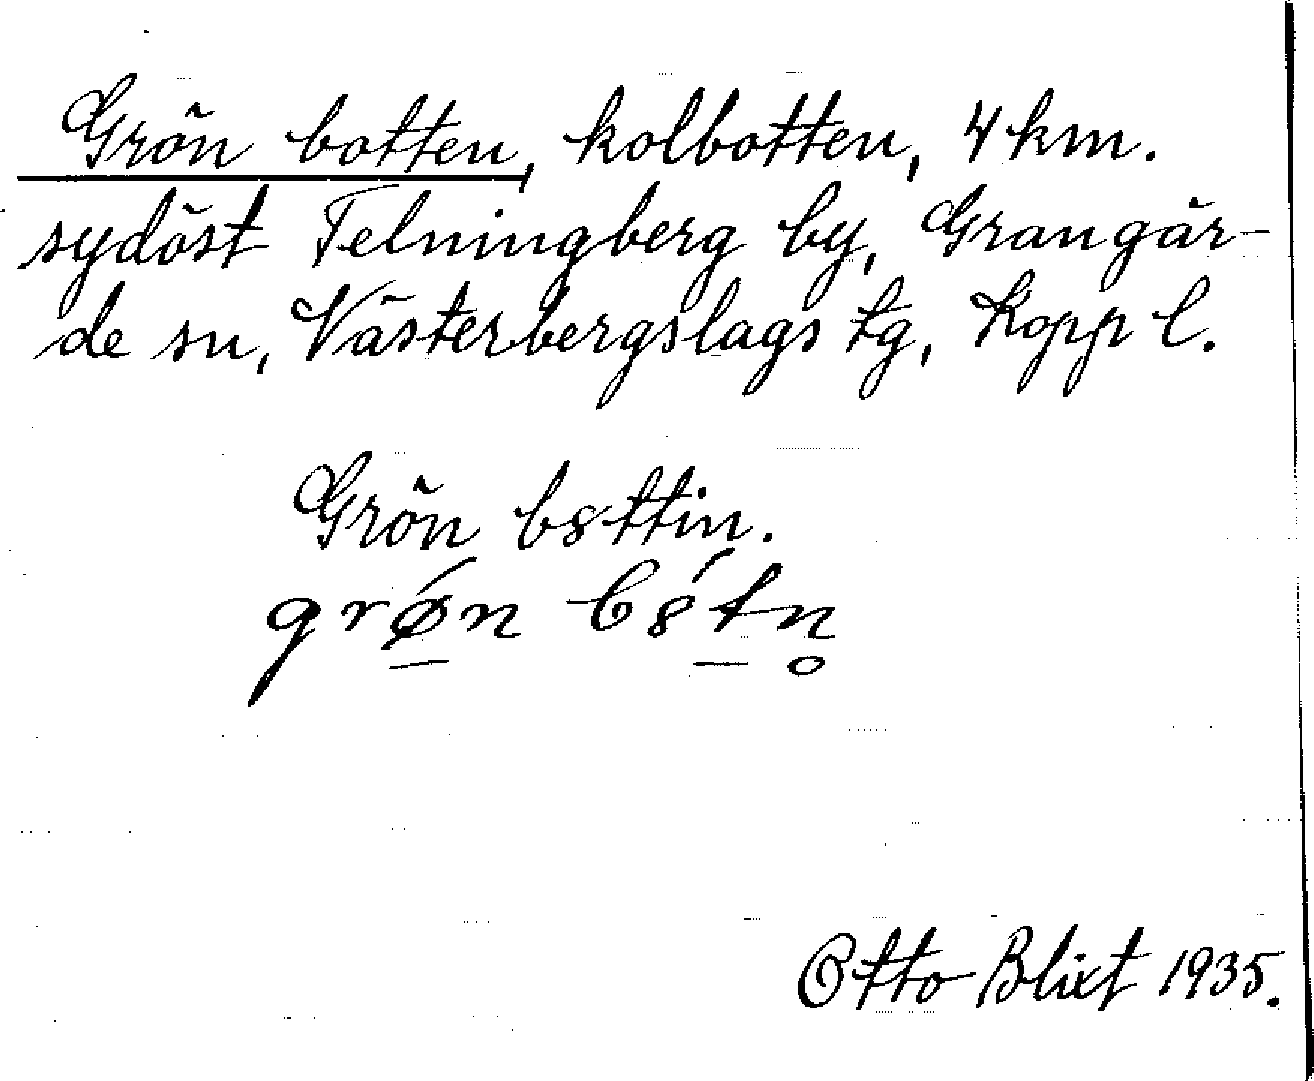 Grön botten, kolbotten, 4 km.
sydöst Felningberg by, Grangär-
de sn, Västerbergslags tg, Kopp l.
Grön b8ttin.
grǿ̱n b8́ṯn̥
Otto Blixt 1935.